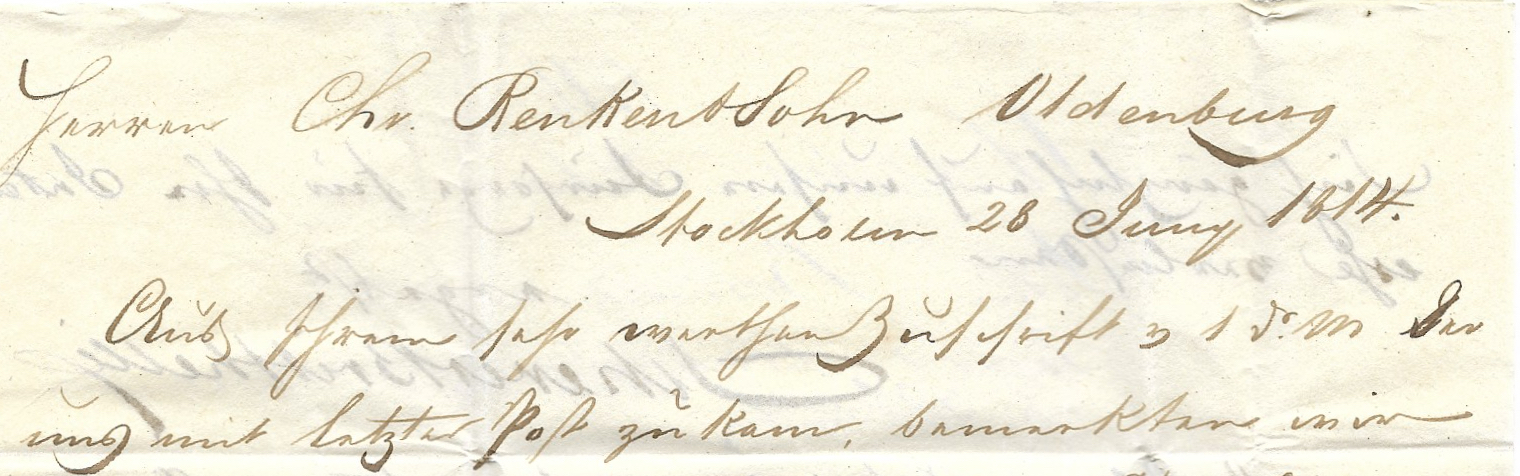 Herren Chr. Renken & Sohn Oldenburg
Stockholm 28 Juny 1814.
Aus Ihrem sehr werthen Zuschrift v 1 ds. M der
uns mit letzter Post zu kam, bemerkten wir